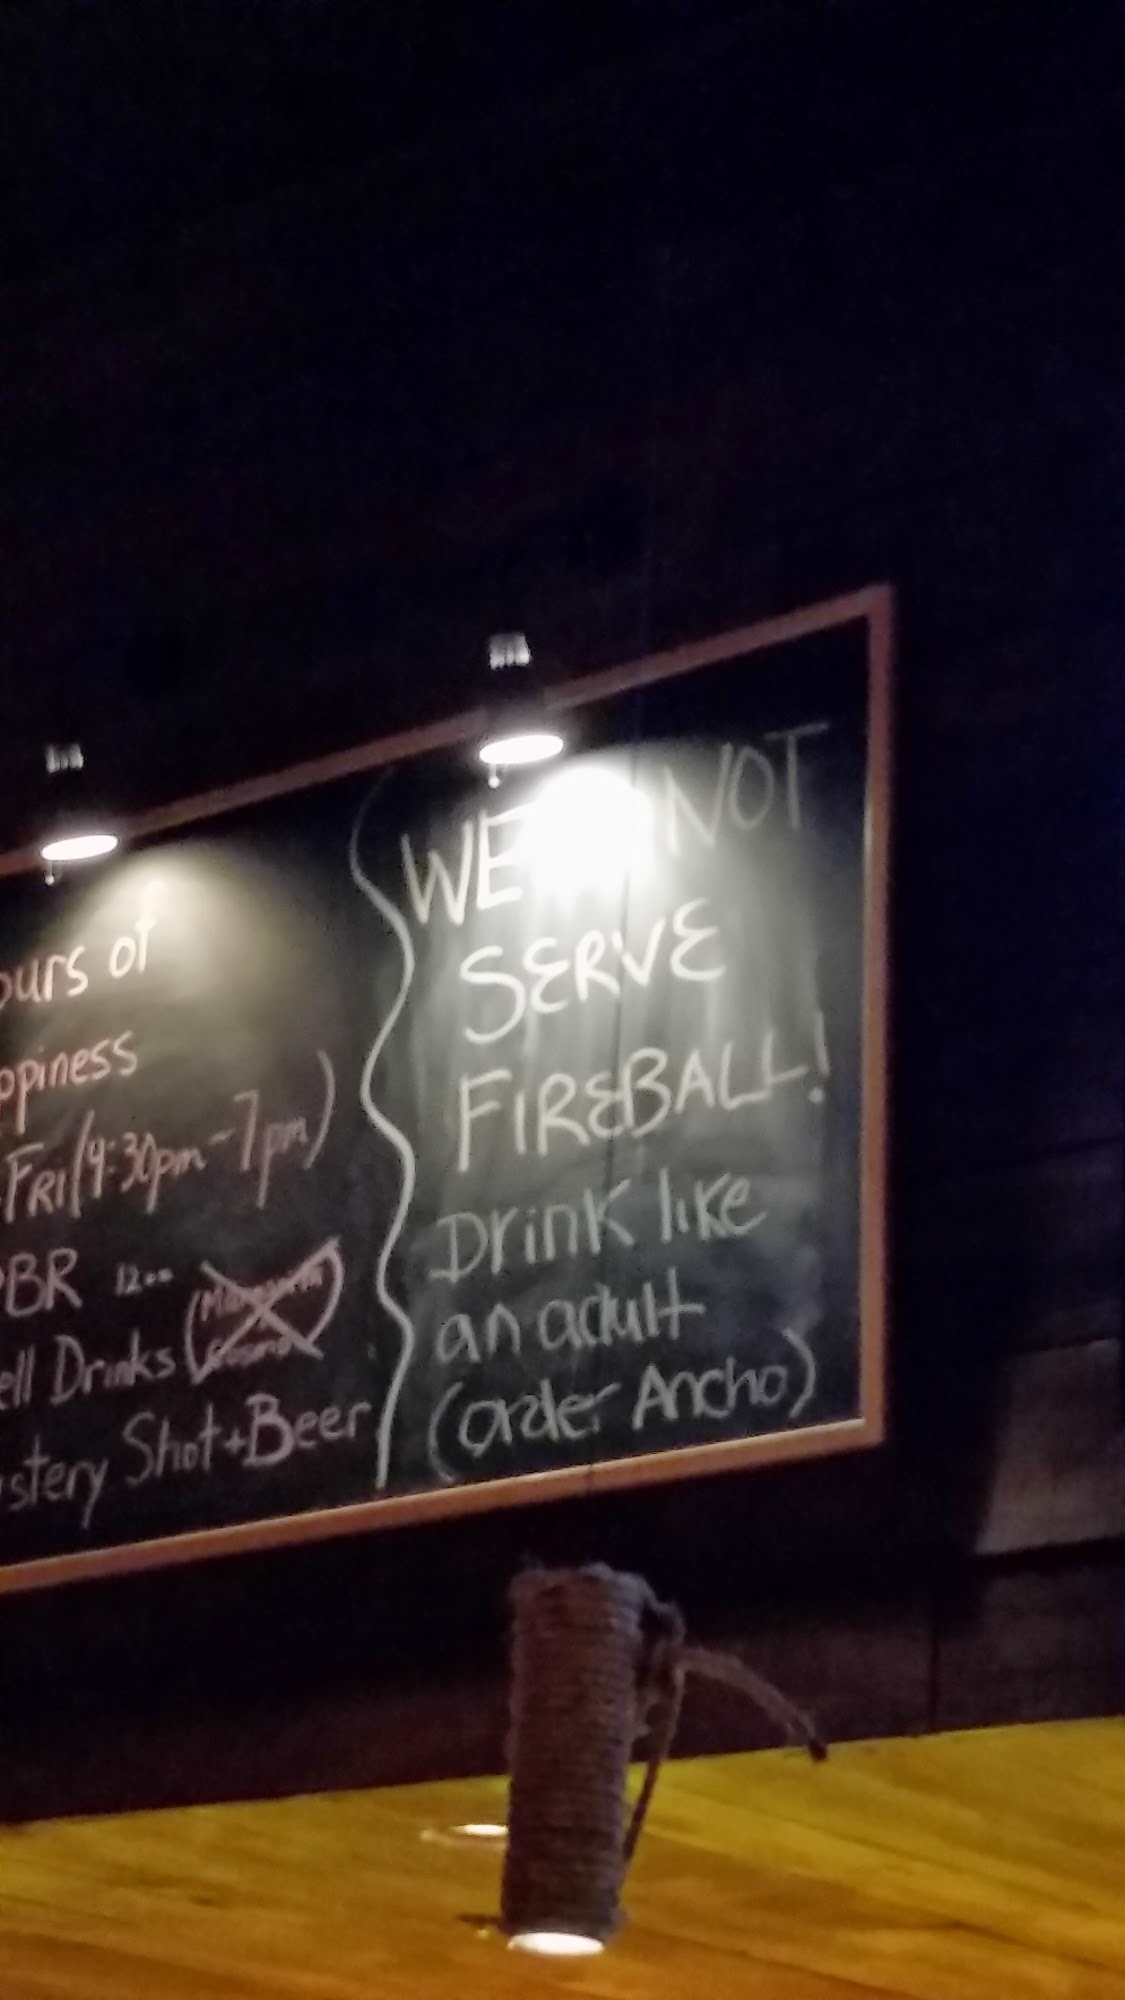 ours of
ppiness
-Fri (4:30pm-7pm)
PBR 12oz
ell Drinks
ystery Shot+Beer
WE NOT
SERVE
FIREBALL!
Drink like
an adult
(order Ancho)